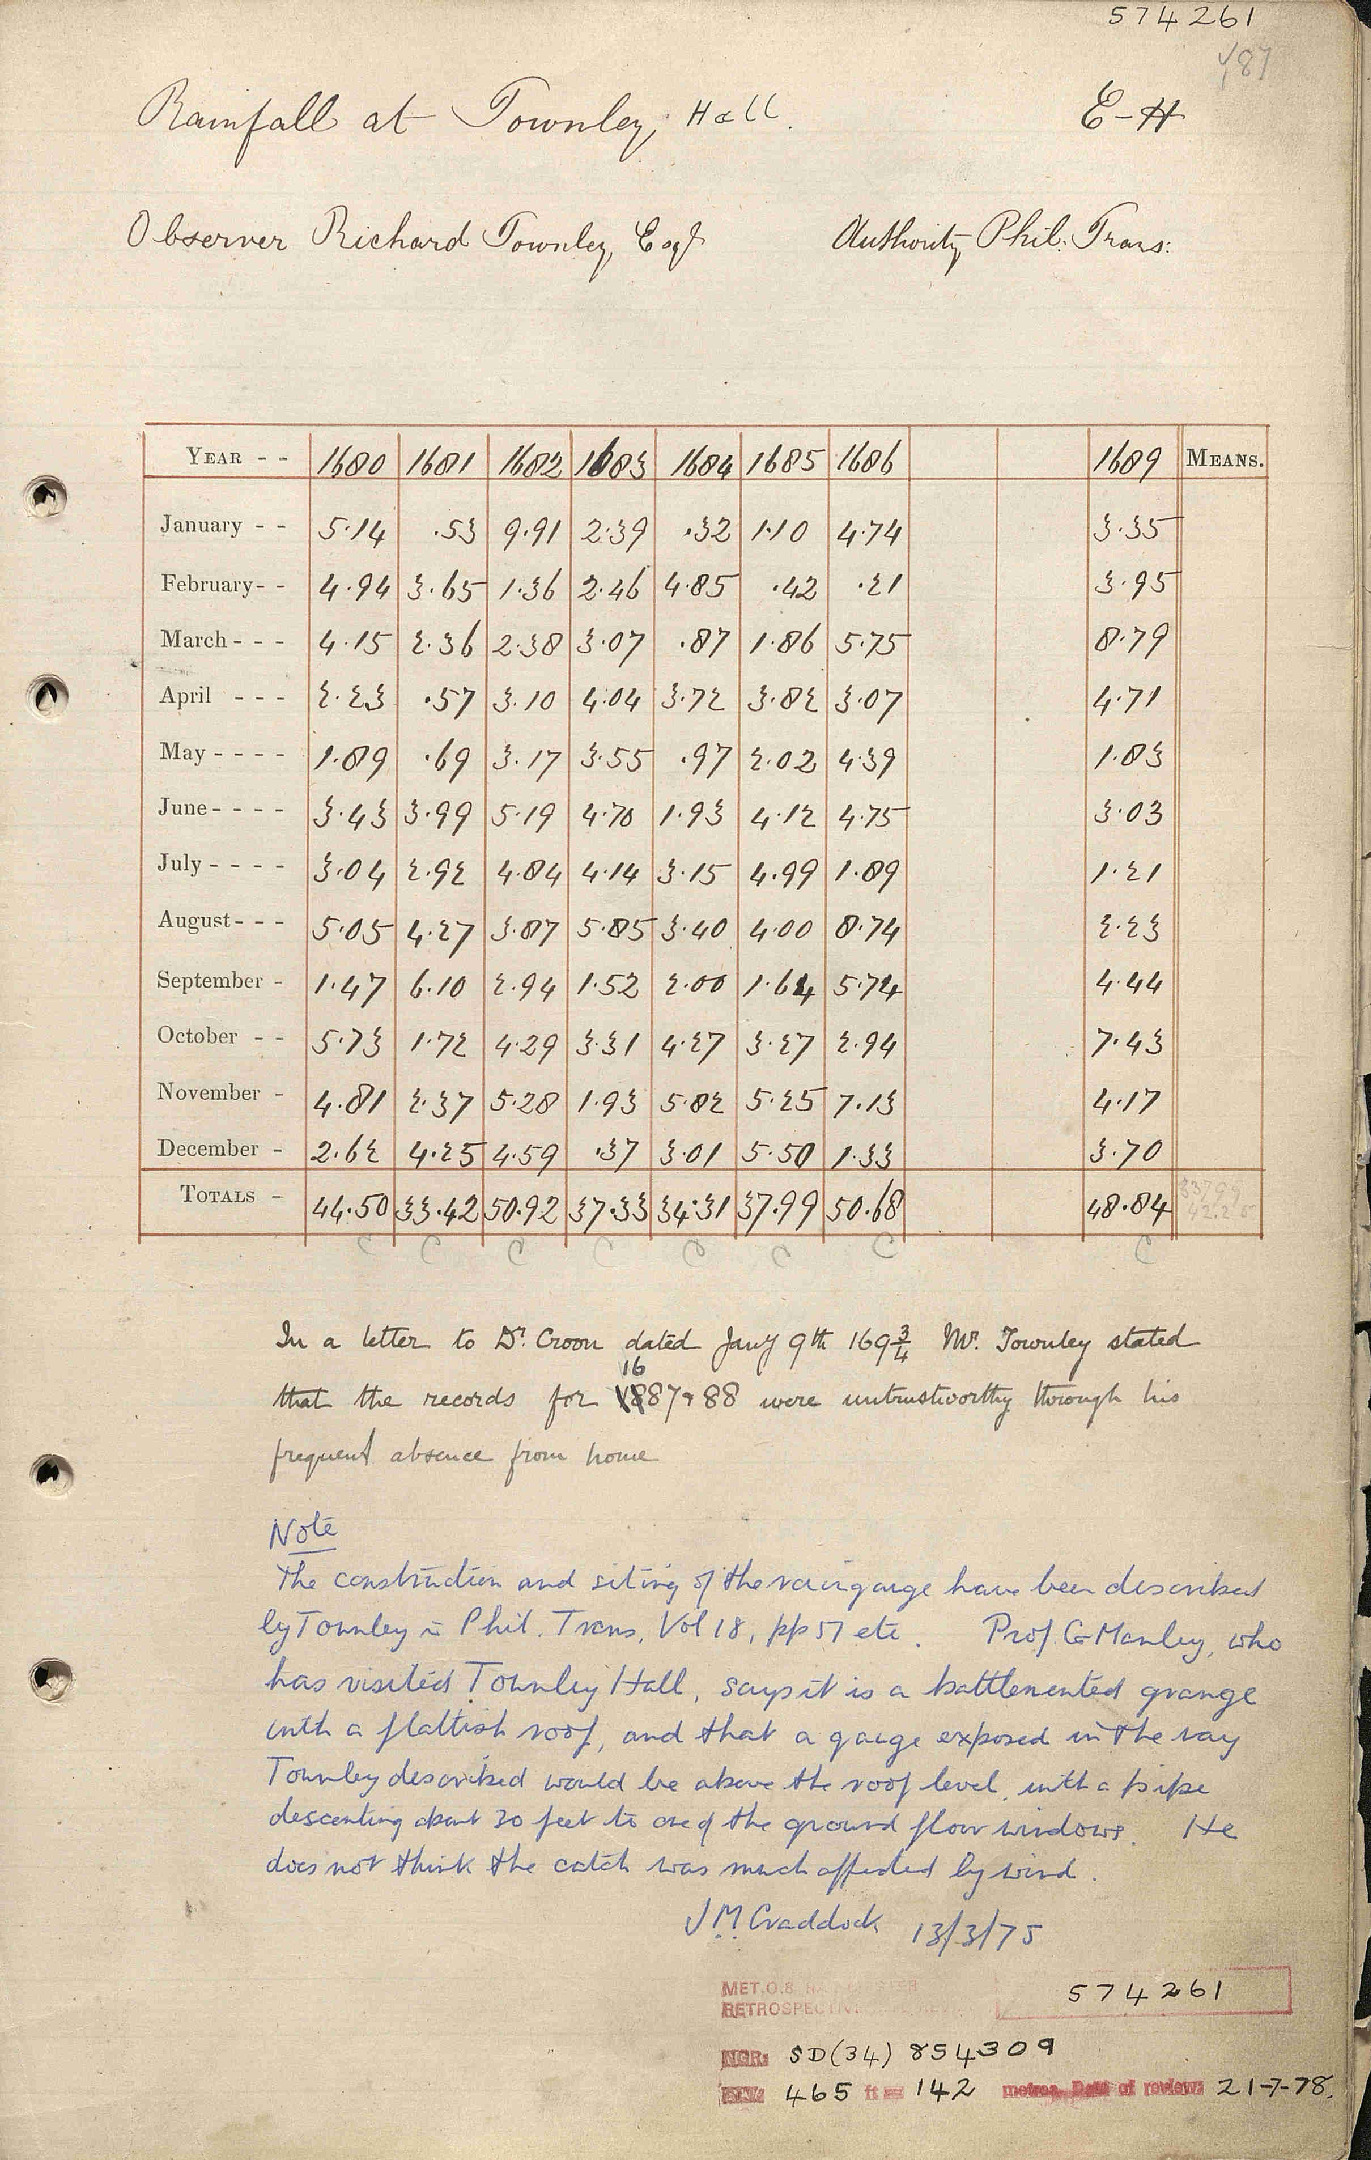 574261
487
Rainfall at Townley Hall. E-H
Observer Richard Townley, Esqr Authority Phil: Trans:
YEAR - - 1680 1681 1682 1683 1684 1685 1686 1689 MEANS.
January - - 5.14 .53 9.91 2.39 .32 1.10 4.74 3.35
February - - 4.94 3.65 1.36 2.46 4.85 .42 .21 3.95
March - - - 4.15 2.36 2.38 3.07 .87 1.86 5.75 8.79
April - - - 2.23 .57 3.10 4.04 3.72 3.82 3.07 4.71
May - - - - 1.89 .69 3.17 3.55 .97 2.02 4.39 1.83
June - - - - 3.43 3.99 5.19 4.70 1.93 4.12 4.75 3.03
July - - - - 3.04 2.92 4.84 4.14 3.15 4.99 1.89 1.21
August - - - 5.05 4.27 3.87 5.85 3.40 4.00 8.74 2.23
September - 1.47 6.10 2.94 1.52 2.00 1.64 5.74 4.44
October - - 5.73 1.72 4.29 3.31 4.27 3.27 2.94 7.43
November - 4.81 2.37 5.28 1.93 5.82 5.25 7.13 4.17
December - 2.62 4.25 4.59 .37 3.01 5.50 1.33 3.70
TOTALS - 44.50 33.42 50.92 37.33 34.31 37.99 50.68 48.84
C C C C C C C C
In a letter to Dr. Croon dated Jany 9th 169¾ Mr. Townley stated
that the records for 1687 & 88 were untrustworthy through his
frequent absence from home
Note
The construction and siting of the raingauge have been described
by Townley in Phil. Trans, Vol 18, pp 51 etc. Prof. G Manley, who
has visited Townley Hall, says it is a battlemented grange
with a flattish roof, and that a gauge exposed in the way
Townley described would be above the roof level, with a pipe
descenting about 30 feet to one of the ground floor windows. He
does not think the catch was much affected by wind.
J.M. Craddock 13/3/75
MET.O.8.
RETROSPECTIVE 574261
NGR: SD(34) 854309
465 ft = 142 metres. Date of review: 21-7-78.